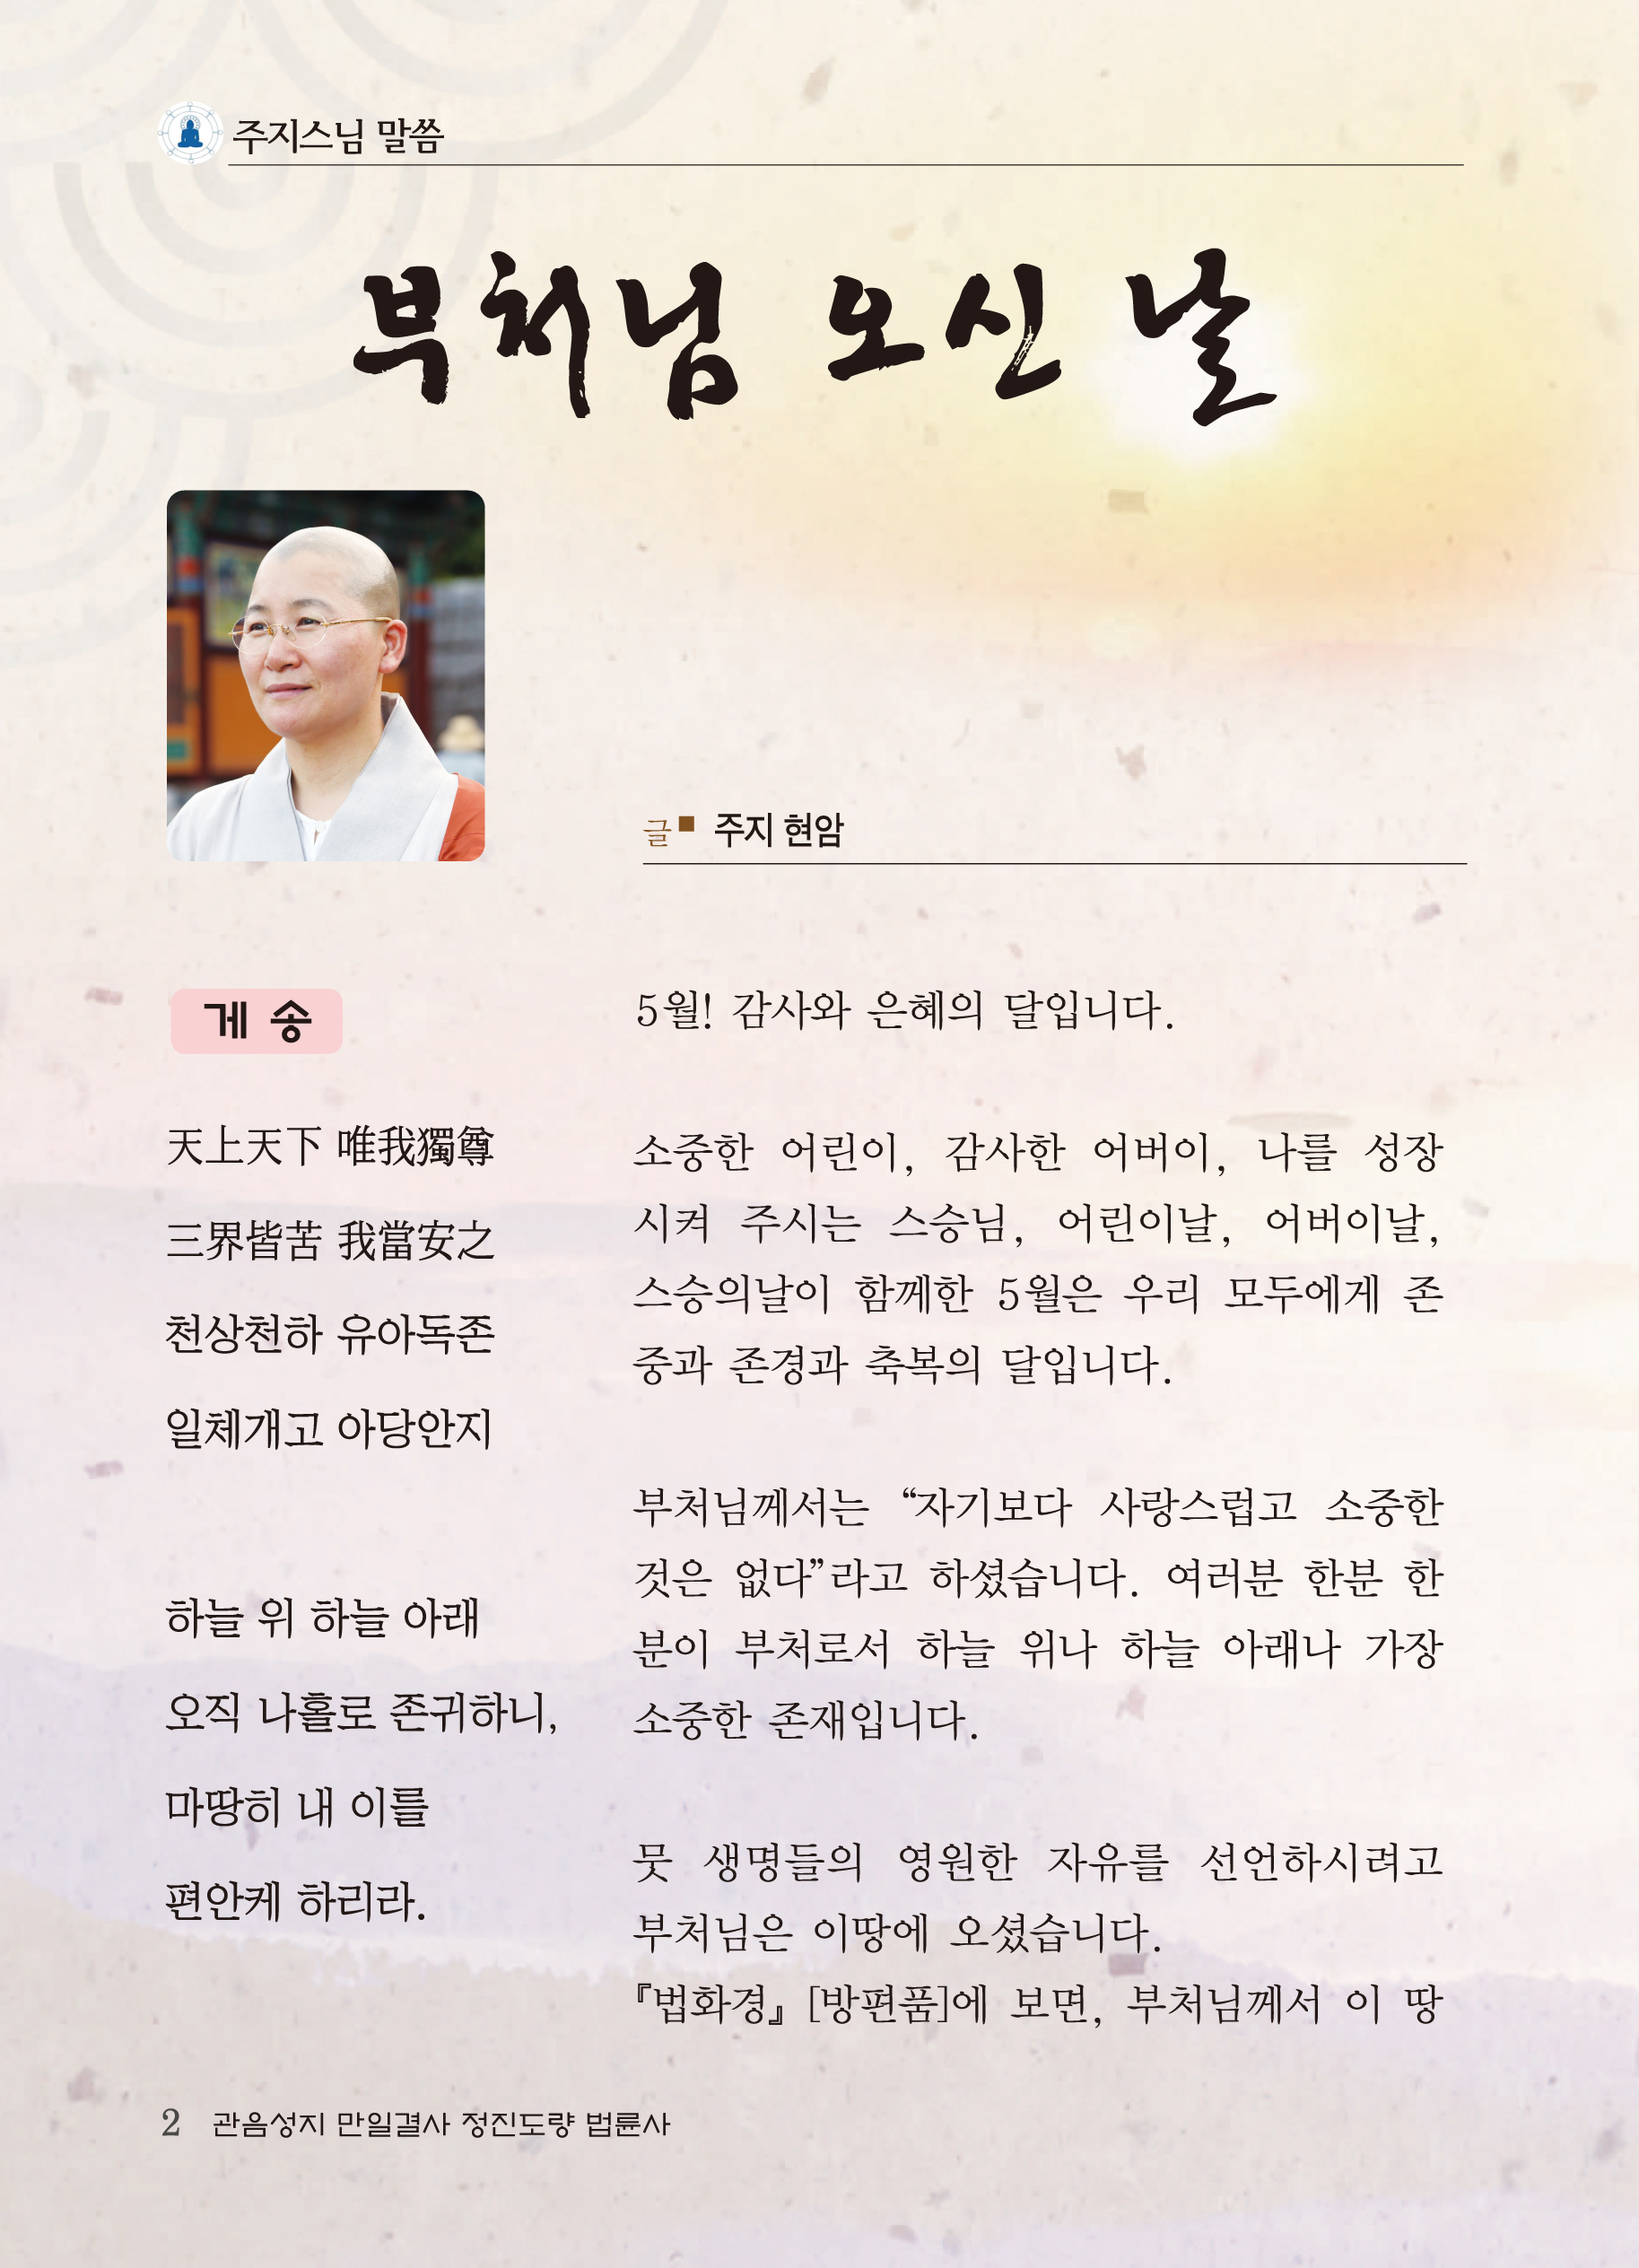 주지스님 말씀
부처님 오신 날
글■ 주지 현암
게 송
天上天下 唯我獨尊
三界皆苦 我當安之
천상천하 유아독존
일체개고 아당안지
하늘 위 하늘 아래
오직 나홀로 존귀하니,
마땅히 내 이를
편안케 하리라.
5월! 감사와 은혜의 달입니다.
소중한 어린이, 감사한 어버이, 나를 성장
시켜 주시는 스승님, 어린이날, 어버이날,
스승의날이 함께한 5월은 우리 모두에게 존
중과 존경과 축복의 달입니다.
부처님께서는 “자기보다 사랑스럽고 소중한
것은 없다”라고 하셨습니다. 여러분 한분 한
분이 부처로서 하늘 위나 하늘 아래나 가장
소중한 존재입니다.
뭇 생명들의 영원한 자유를 선언하시려고
부처님은 이땅에 오셨습니다.
『법화경』 [방편품]에 보면, 부처님께서 이 땅
2 관음성지 만일결사 정진도량 법륜사